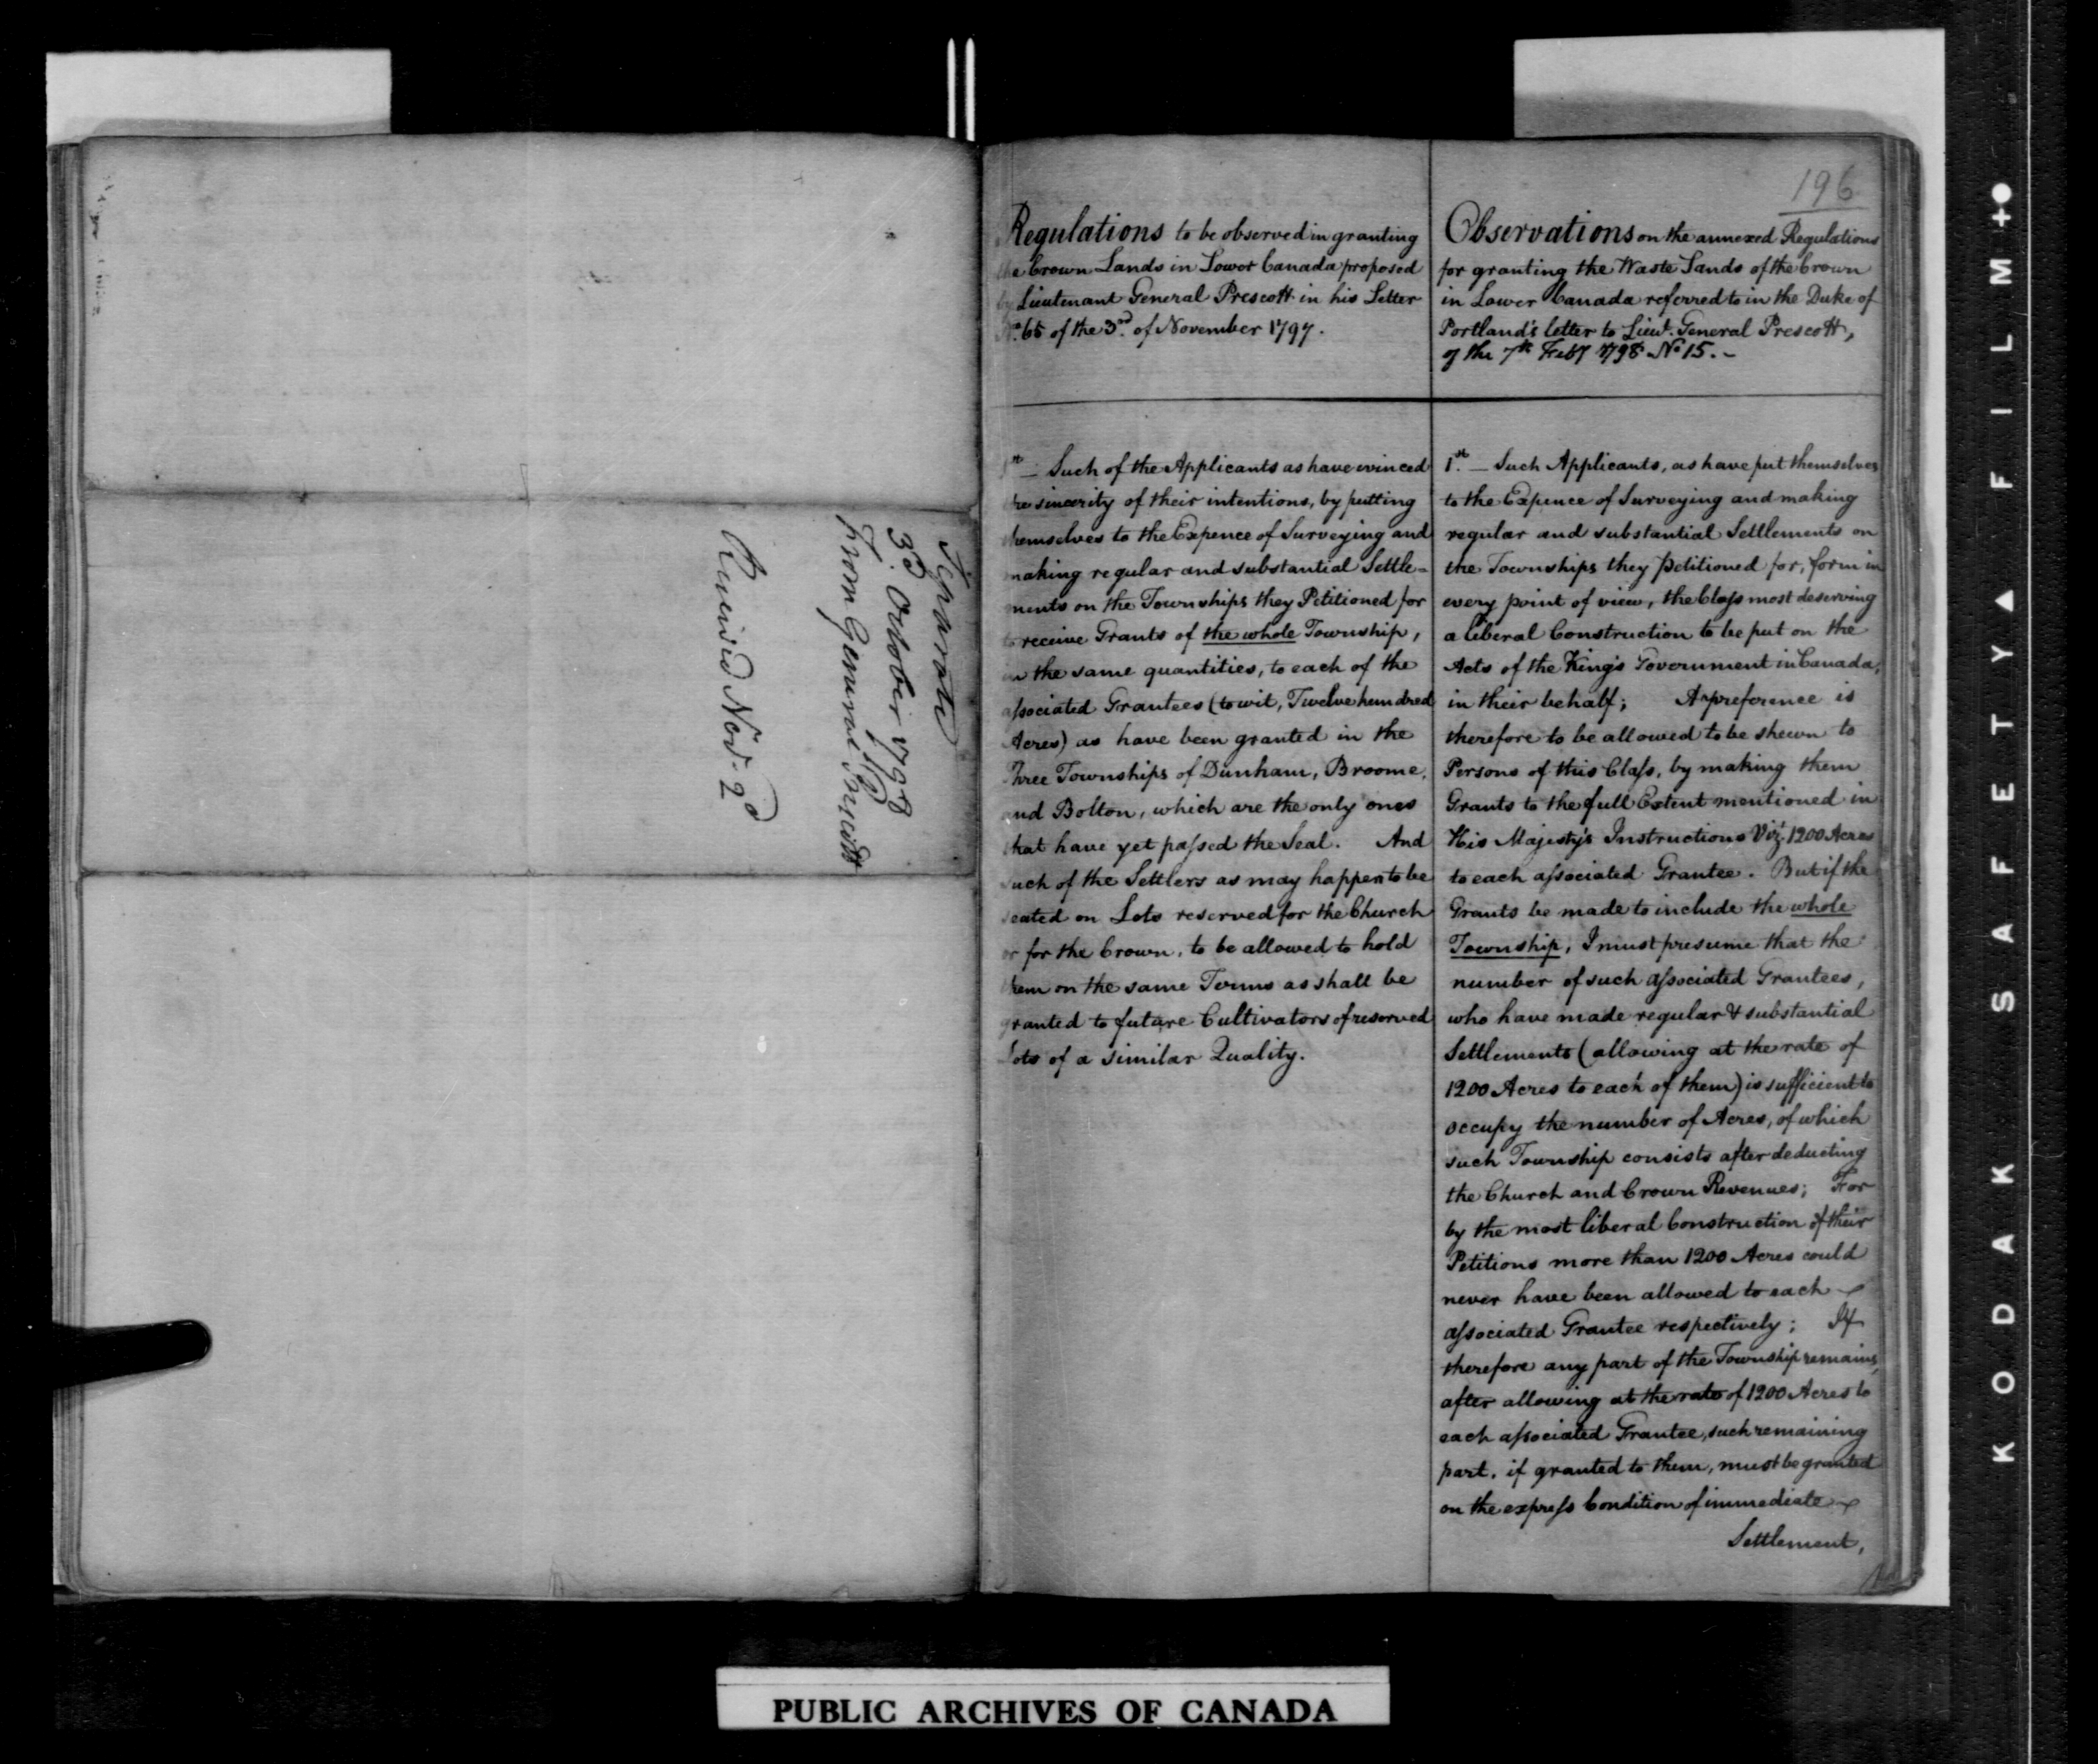 Separate
3d. October 1798
From General Prescott
Received Novr. 2d
196
Regulations to be observed in granting
the Crown Lands in Lower Canada proposed
by Lieutenant General Prescott in his Letter
No. 65 of the 3rd. of November 1797.
1st — Such of the Applicants as have evinced
the sincerity of their intentions, by putting
themselves to the Expence of Surveying and
making regular and substantial Settle-
ments on the Townships they Petitioned for
to receive Grants of the whole Township,
in the same quantities, to each of the
associated Grantees (to wit, Twelve hundred
Acres) as have been granted in the
Three Townships of Dunham, Broome,
and Bolton, which are the only ones
that have yet passed the Seal. And
such of the Settlers as may happen to be
seated on Lots reserved for the Church
or for the Crown, to be allowed to hold
them on the same Terms as shall be
granted to future Cultivators of reserved
Lots of a similar Quality.
Observations on the annexed Regulations
for granting the Waste Lands of the Crown
in Lower Canada referred to in the Duke of
Portland's letter to Lieut. General Prescott,
of the 7th Feby 1798 No 15. -
1st. — Such Applicants, as have put themselves
to the Expence of Surveying and making
regular and substantial Settlements on
the Townships they petitioned for, form in
every point of view, the Class most deserving
a liberal Construction to be put on the
Acts of the King's Government in Canada,
in their behalf; A preference is
therefore to be allowed to be shewn to
Persons of this Class, by making them
Grants to the full Extent mentioned in
His Majesty's Instructions Vizt. 1200 Acres
to each associated Grantee. But if the
Grants be made to include the whole
Township, I must presume that the
number of such associated Grantees,
who have made regular & substantial
Settlements (allowing at the rate of
1200 Acres to each of them) is sufficient to
occupy the number of Acres, of which
such Township consists after deducting
the Church and Crown Revenues; For
by the most liberal Construction of their
Petitions more than 1200 Acres could
never have been allowed to each
associated Grantee respectively; If
therefore any part of the Township remains,
after allowing at the rate of 1200 Acres to
each associated Grantee, such remaining
part, if granted to them, must be granted
on the express Condition of immediate
Settlement,
PUBLIC ARCHIVES OF CANADA
KODAK SAFETY ▲ FILM +●